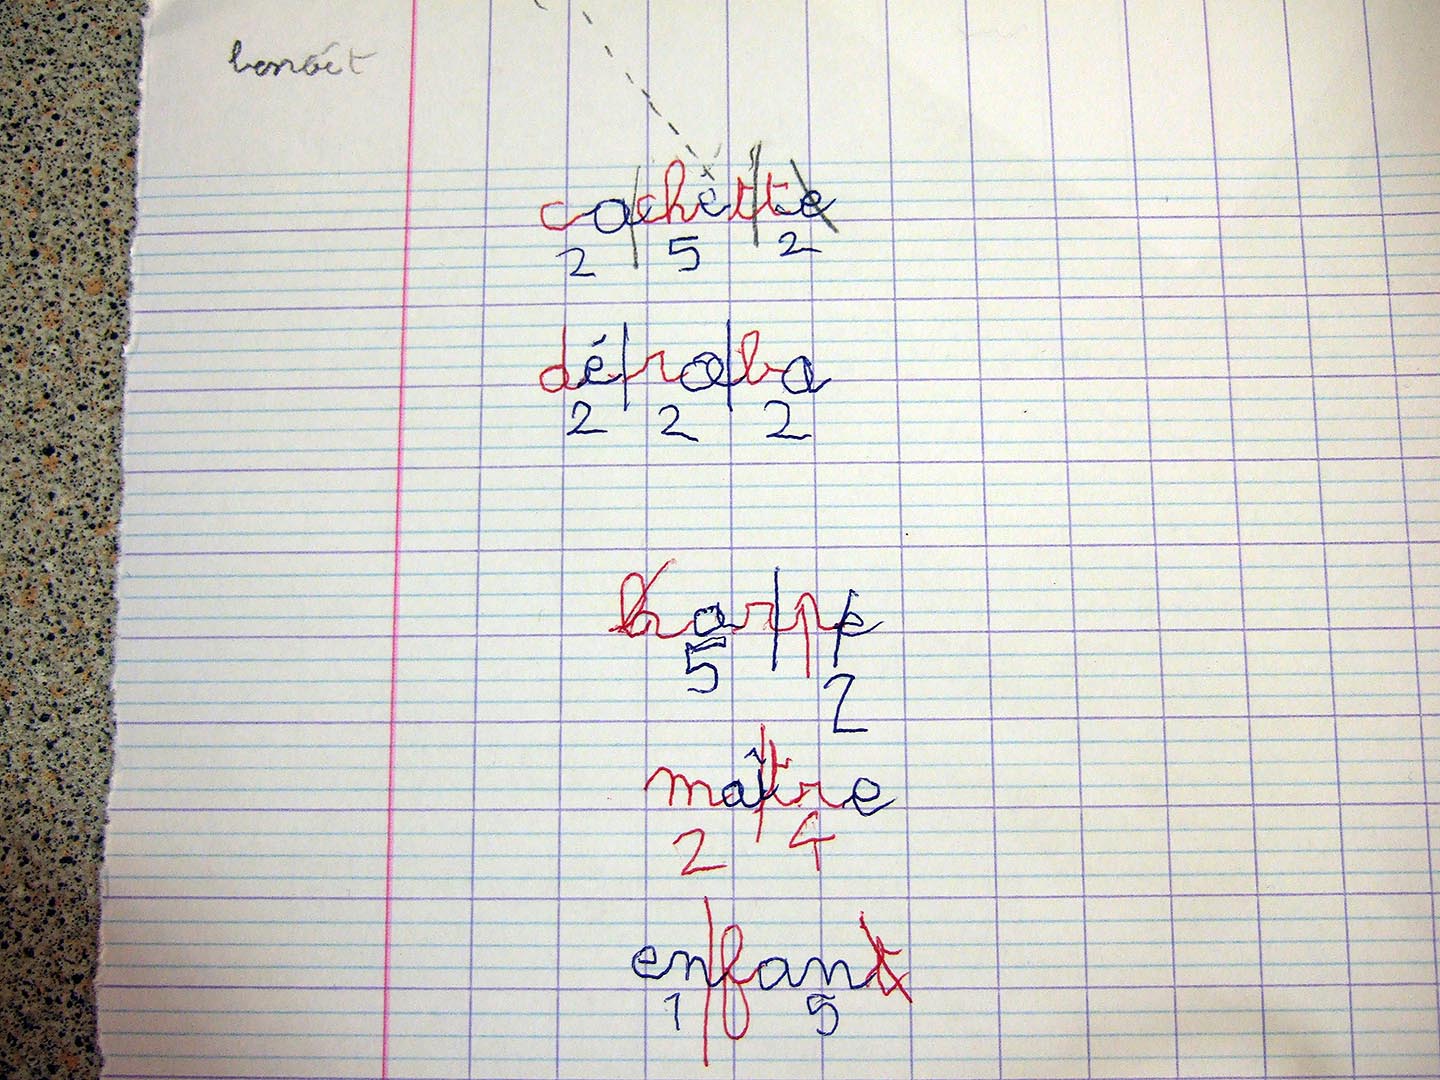 benoît
ca/chet/te
2 5 2
dé/ra/ba
2 2 2
har/pe
5 2
maî/tre
2 4
en/fant
1 5